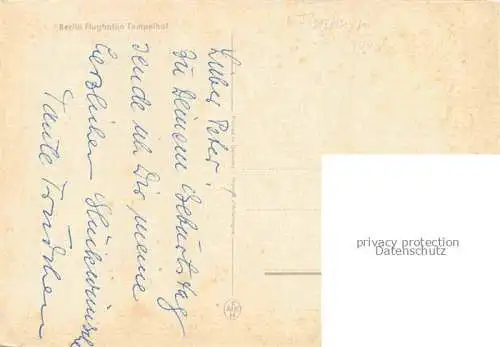 Berlin Flughafen Tempelhof
Lieber Peter!
Zu Deinem Geburtstag
sende ich Dir meine
herzlichen Glückwünsche
Tante Trudchen
privacy protection
Datenschutz